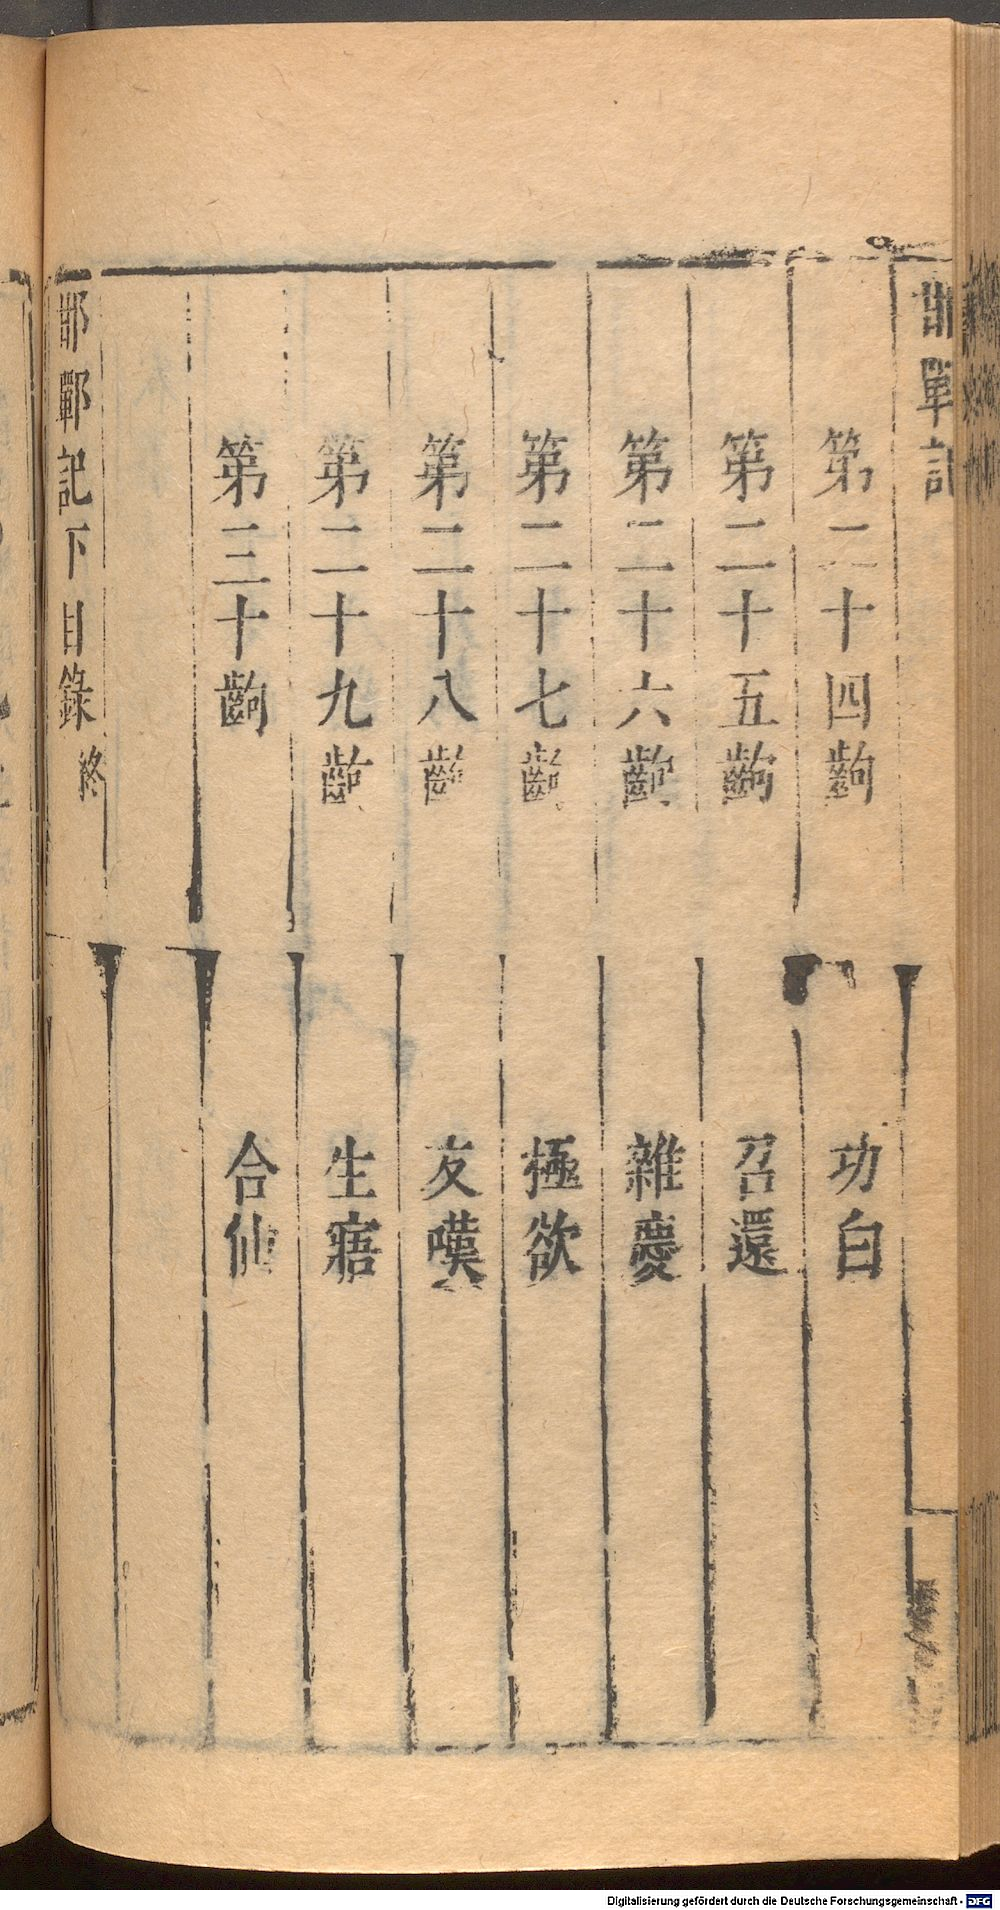 邯鄲記
第二十四齣 功白
第二十五齣 召還
第二十六齣 雜慶
第二十七齣 極欲
第二十八齣 友嘆
第二十九齣 生寤
第三十齣 合仙
邯鄲記下目錄終
Digitalisierung gefördert durch die Deutsche Forschungsgemeinschaft - DFG